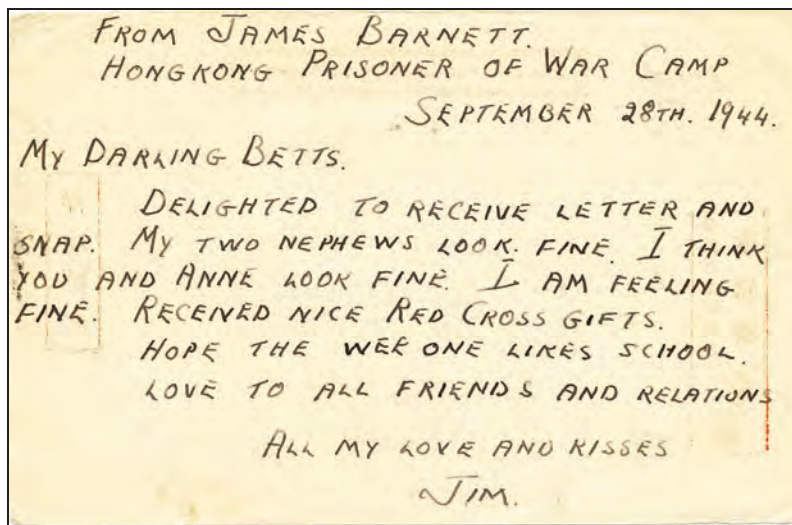 FROM JAMES BARNETT.
HONGKONG PRISONER OF WAR CAMP
SEPTEMBER 28TH. 1944.
MY DARLING BETTS.
DELIGHTED TO RECEIVE LETTER AND
SNAP. MY TWO NEPHEWS LOOK. FINE. I THINK
YOU AND ANNE LOOK FINE. I AM FEELING
FINE. RECEIVED NICE RED CROSS GIFTS.
HOPE THE WEE ONE LIKES SCHOOL.
LOVE TO ALL FRIENDS AND RELATIONS
ALL MY LOVE AND KISSES
JIM.